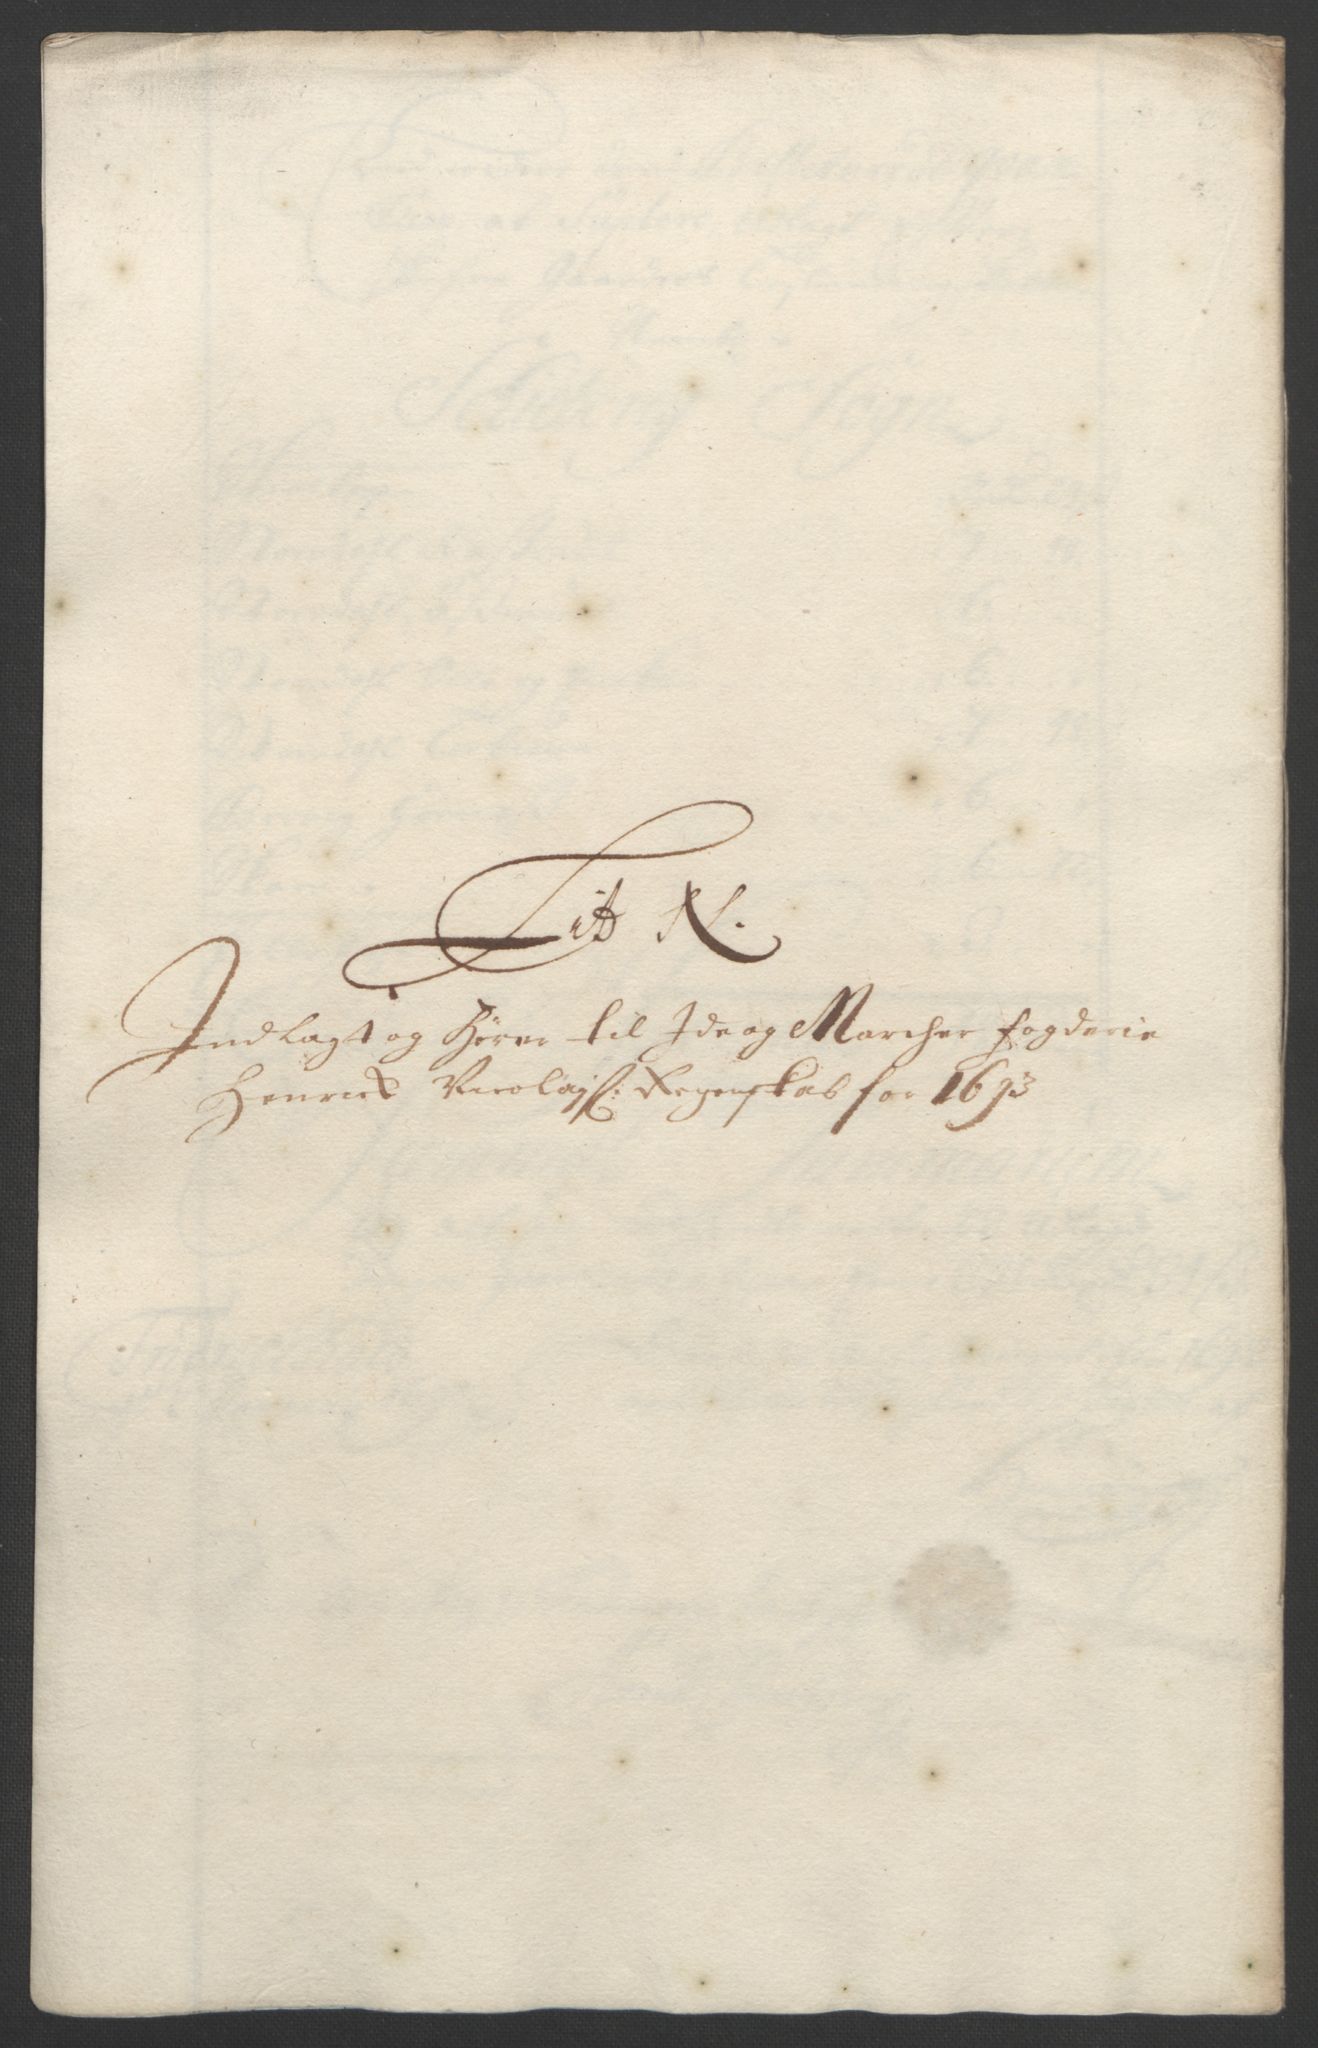 Lit N.
Indlagt og hører til Ide og Marcher fogderie
Henrick Nicolajs: Regenskab for 1693